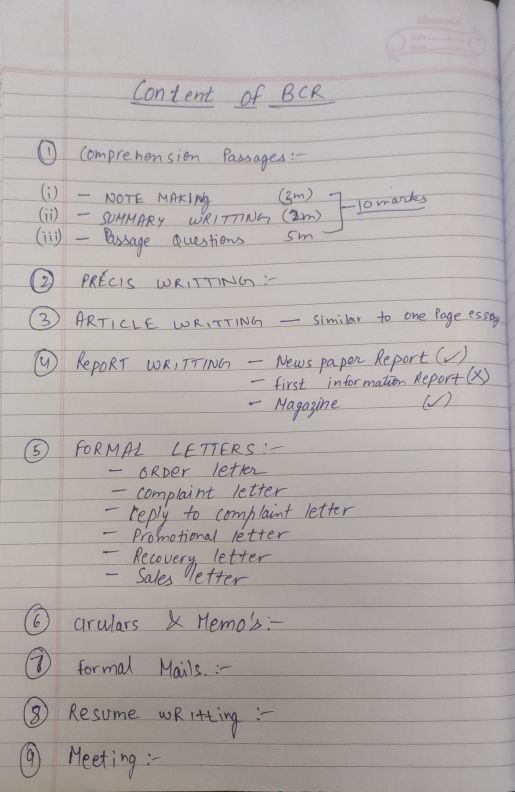 Content of BCR
① Comprehension Passages:-
(i) - NOTE MAKING (3m)
(ii) - SUMMARY WRITTING (2m) 10 marks
(iii) - Passage Questions 5m
② PRÉCIS WRITTING:-
③ ARTICLE WRITTING - Similar to one Page essay
④ RePORT WRITTING - News paper Report (✓)
- first information Report (X)
- Magazine (✓)
⑤ FORMAL LETTERS:-
- ORDER letter
- complaint letter
- reply to complaint letter
- Promotional letter
- Recovery letter
- Sales letter
⑥ Circulars & Memo's:-
⑦ formal Mails.:-
⑧ Resume wRitting :-
⑨ Meeting:-